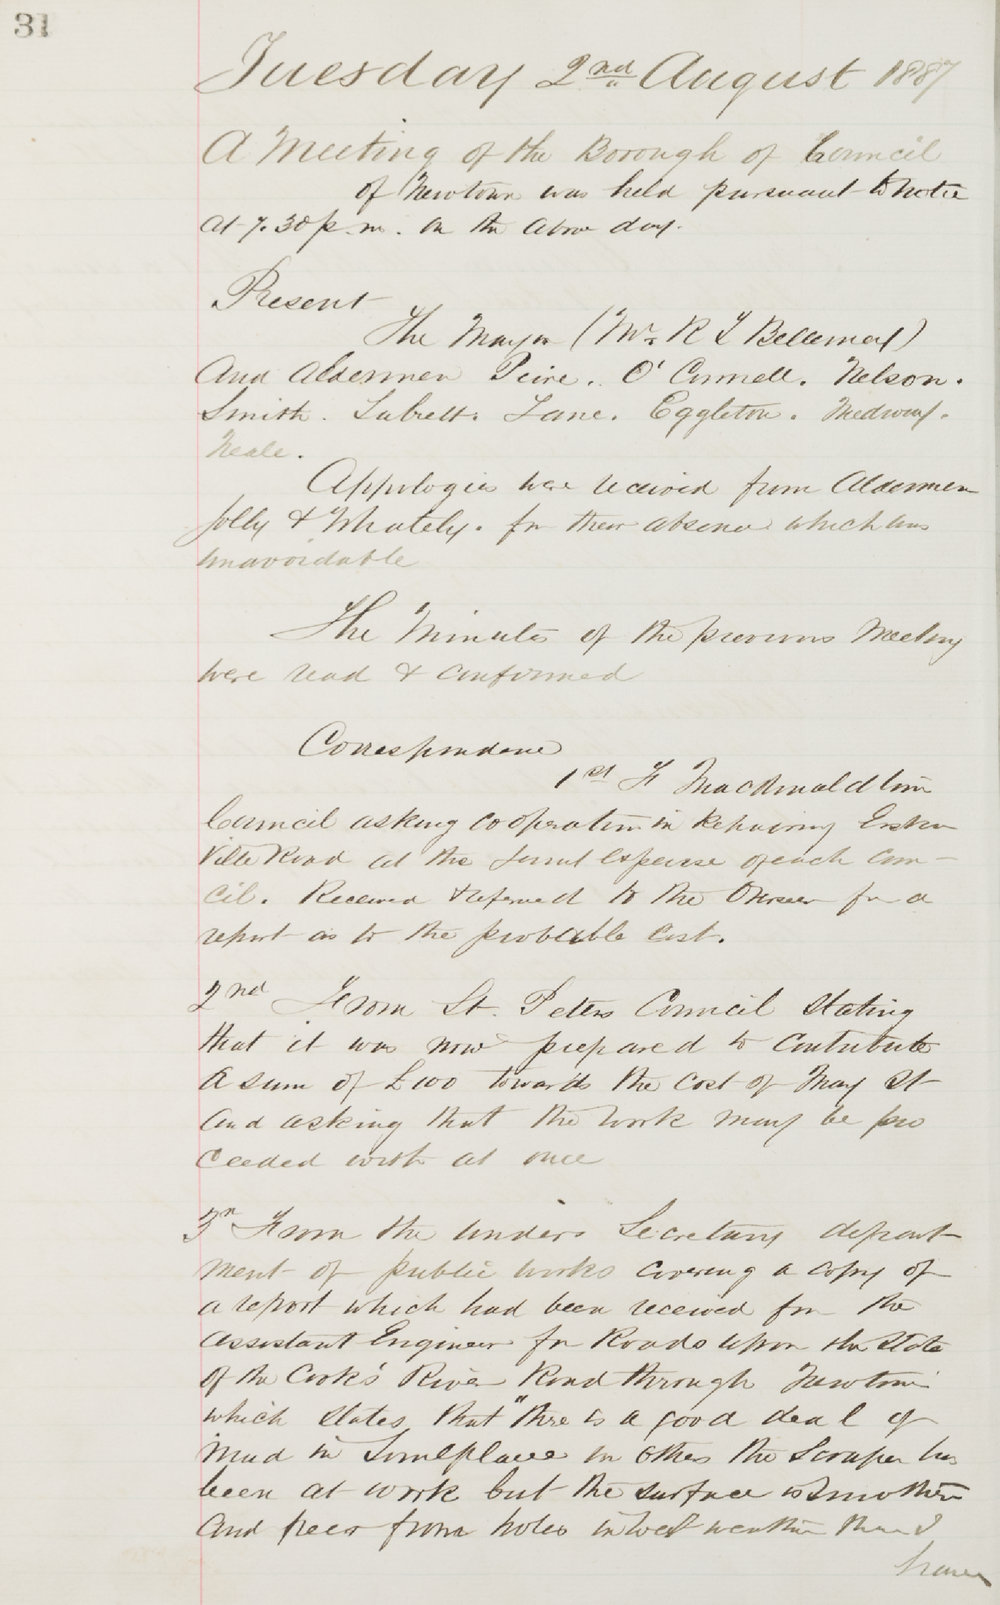 31
Tuesday 2nd August 1887
A Meeting of the Borough of Council
of Newtown was held pursuant to Notice
at 7.30 p.m. on the above day.
Present
The Mayor (Mr. R T Bellemey)
And Aldermen Peire. O'Connell. Nelson.
Smith. Tabrett. Lane. Eggleton. Medway.
Neale.
Appologies were received from Aldermen
Jolly & Whately. for their absence which was
unavoidable
The Minutes of the previous Meeting
were read & confirmed
Correspondence
1st Fr MacDonaldtown
Council asking cooperation in Repairing Erskin
Ville Road at the Joint expense of each Coun-
cil. Received & referred to the Overseer for a
report as to the probable cost.
2nd From St. Peters Council stating
that it was now prepared to contribute
a sum of £100 towards the cost of May St
and asking that the work may be pro
ceeded with at once
3r From the under Secretary depart
ment of public works covering a copy of
a report which had been received from the
assistant Engineer for Roads upon the State
of the Cook's River Road through Newtown
which states that "there is a good deal of
mud in Some places in others the Scraper has
been at work but the surface is Smoother
and freer from holes in wet weather than I
have